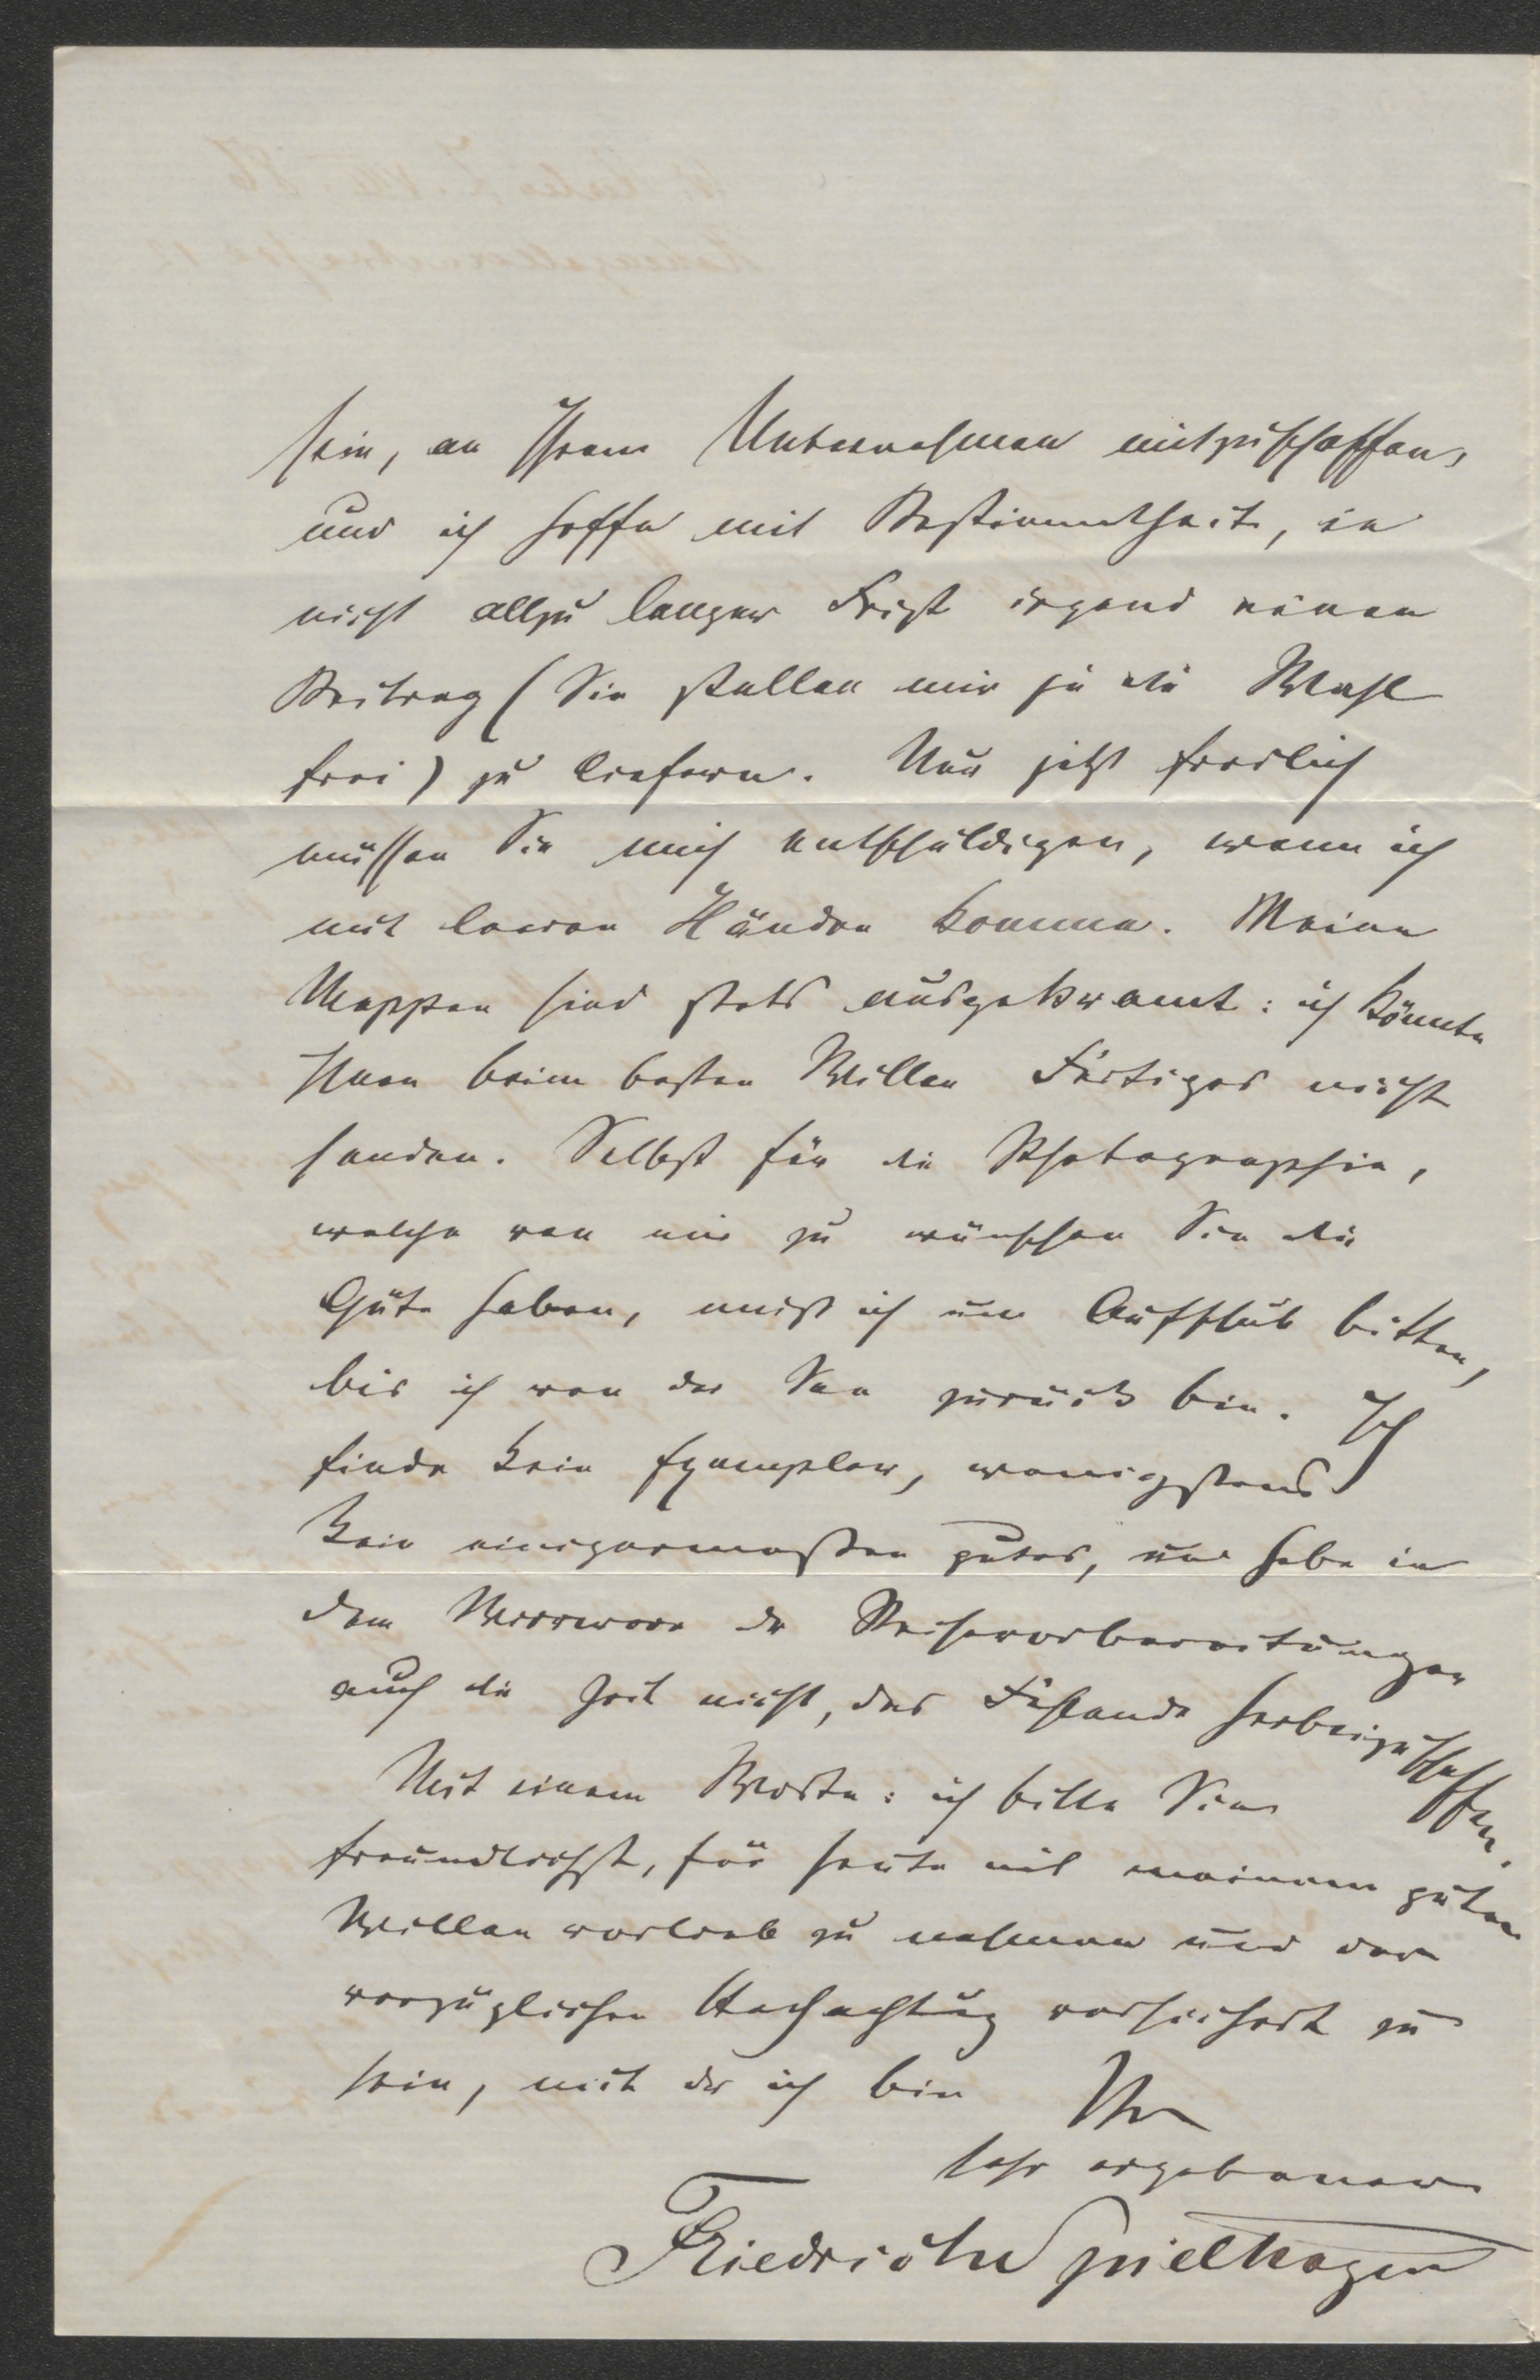 sein, an Ihrem Unternehmen mitzuschaffen,
und ich hoffe mit Bestimmtheit, in
nicht allzu langer Frist irgend einen
Beitrag (Sie stellen mir ja die Wahl
frei) zu liefern. Nur jetzt freilich
müssen Sie mich entschuldigen, wenn ich
mit leeren Händen komme. Meine
Mappen sind stets ausgekramt: ich könnte
Ihnen beim besten Willen Fertiges nicht
senden. Selbst für die Photographie,
welche von mir zu wünschen Sie die
Güte haben, muß ich um Aufschub bitten,
bis ich von der See zurück bin. Ich
finde kein Exemplar, wenigstens
kein einigermaßen gutes, und habe in
dem Wirrwarr der Reisevorbereitungen
auch die Zeit nicht, das Fehlende herbeizuschaffen.
Mit einem Worte: ich bitte Sie
freundlichst, für heute mit meinem guten
Willen vorlieb zu nehmen und der
vorzüglichen Hochachtung versichert zu
sein, mit der ich bin Ihr
sehr ergebener
Friedrich Spielhagen